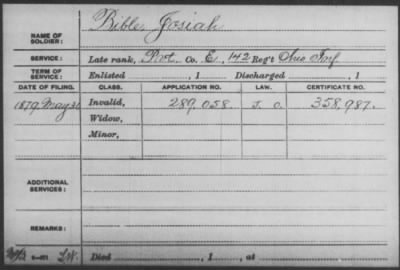 NAME OF SOLDIER: Bible, Josiah
SERVICE: Late rank, Pvt. Co. E, 142 Reg't Ohio Inf
TERM OF SERVICE: Enlisted , 1 Discharged , 1
DATE OF FILING. CLASS. APPLICATION NO. LAW. CERTIFICATE NO.
1879, May 31 Invalid, 289,058. 358,987.
Widow,
Minor,
ADDITIONAL SERVICES:
REMARKS:
Died , 1 , at